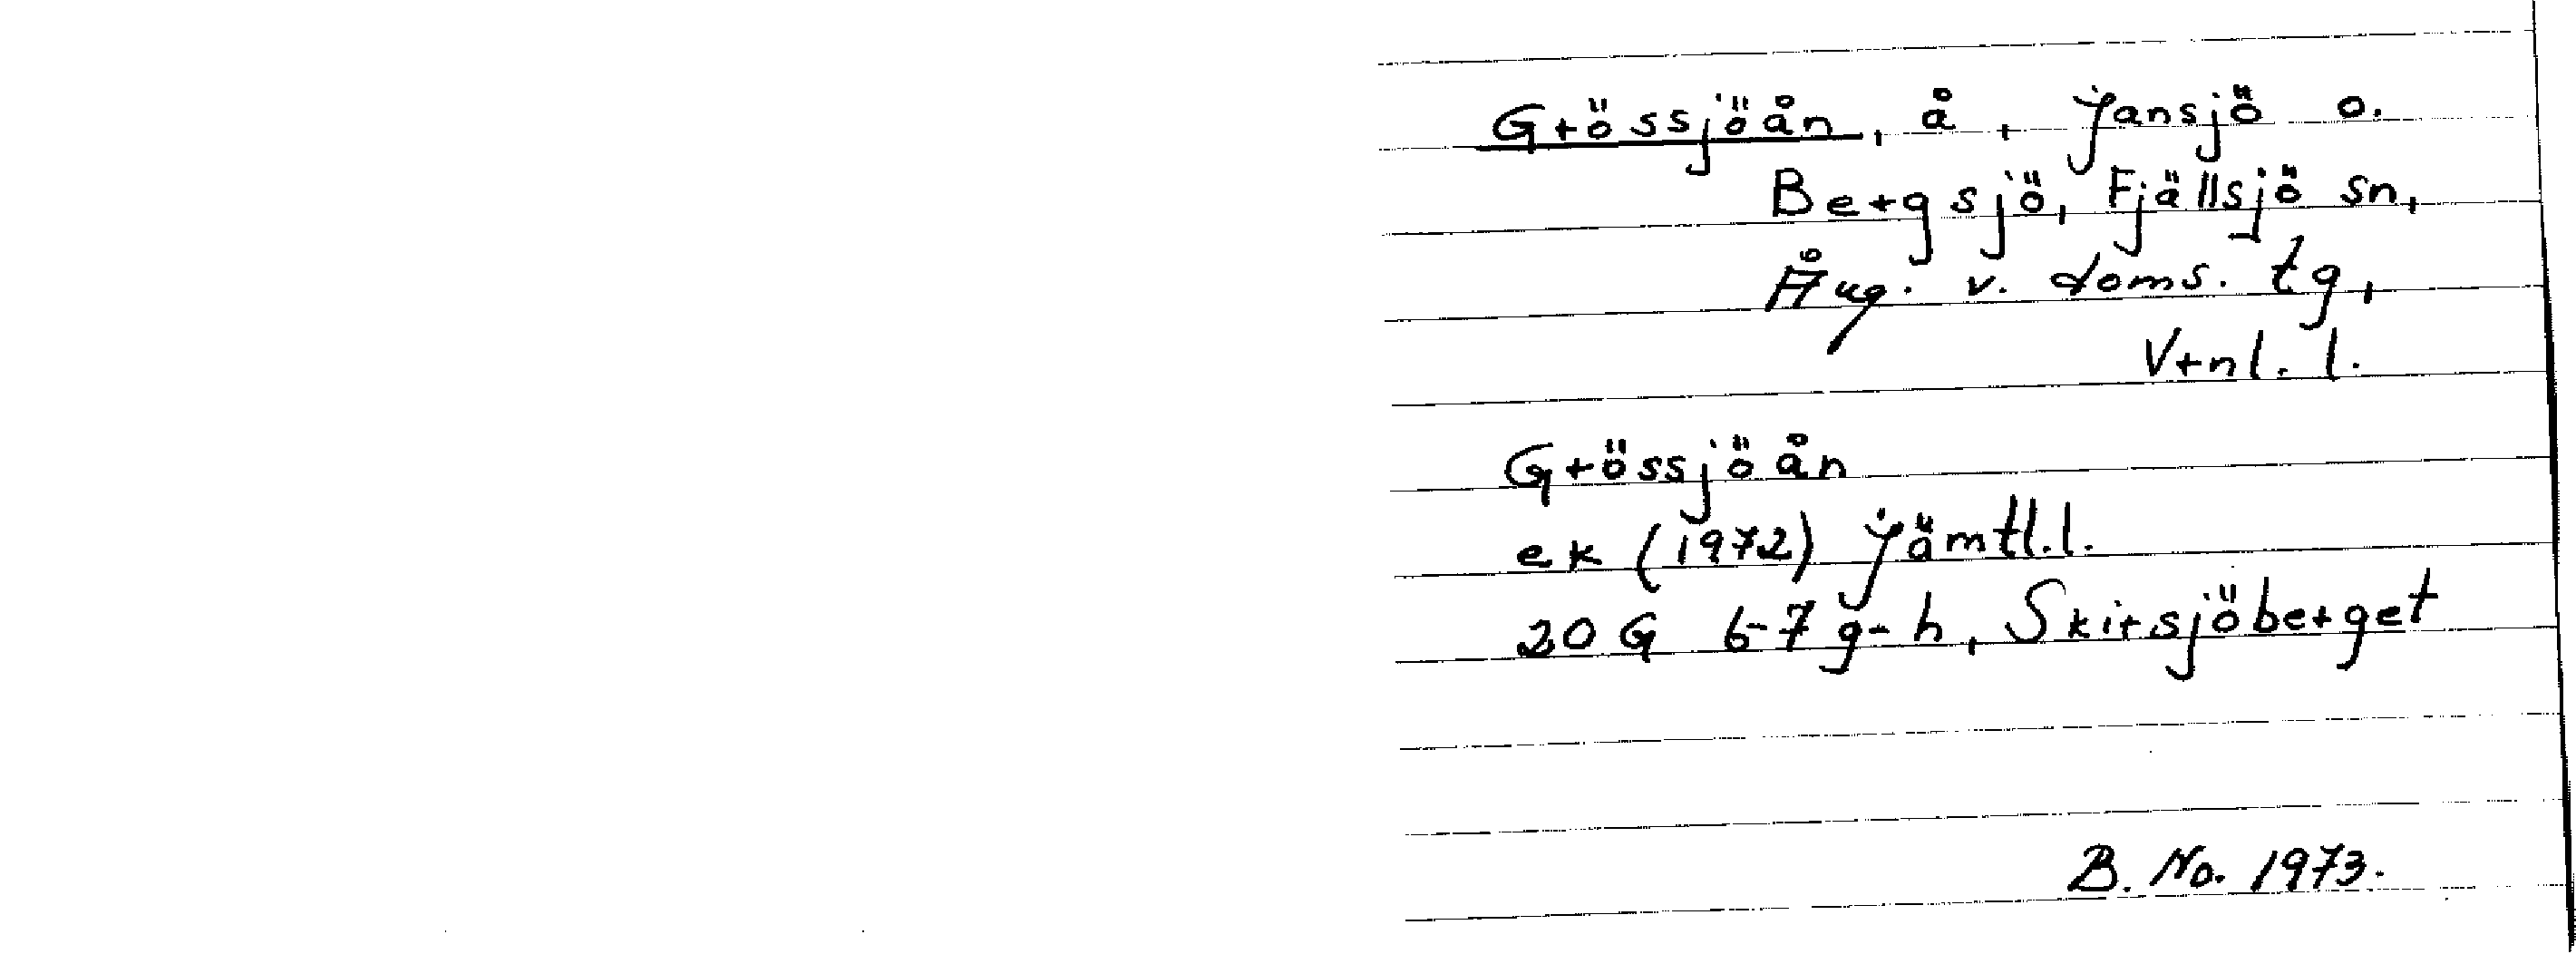 Grössjöån, å, Jansjö o.
Bergsjö, Fjällsjö sn,
Ång. v. doms. tg,
Vrnl. l.
Grössjöån
ek (1972) Jämtl. l.
20 G 6-7 g-h, Skirsjöberget
B. No. 1973.